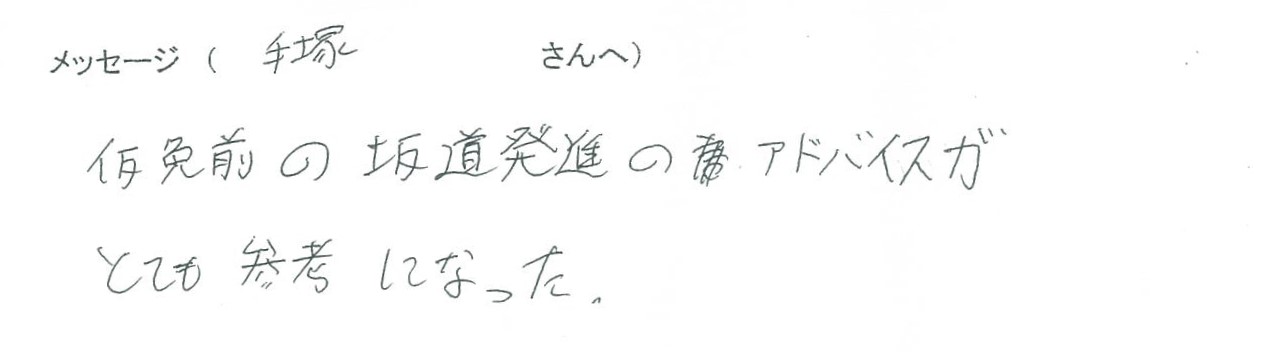 メッセージ( 手塚 さんへ)
仮免前の坂道発進のアドバイスが
とても参考になった。